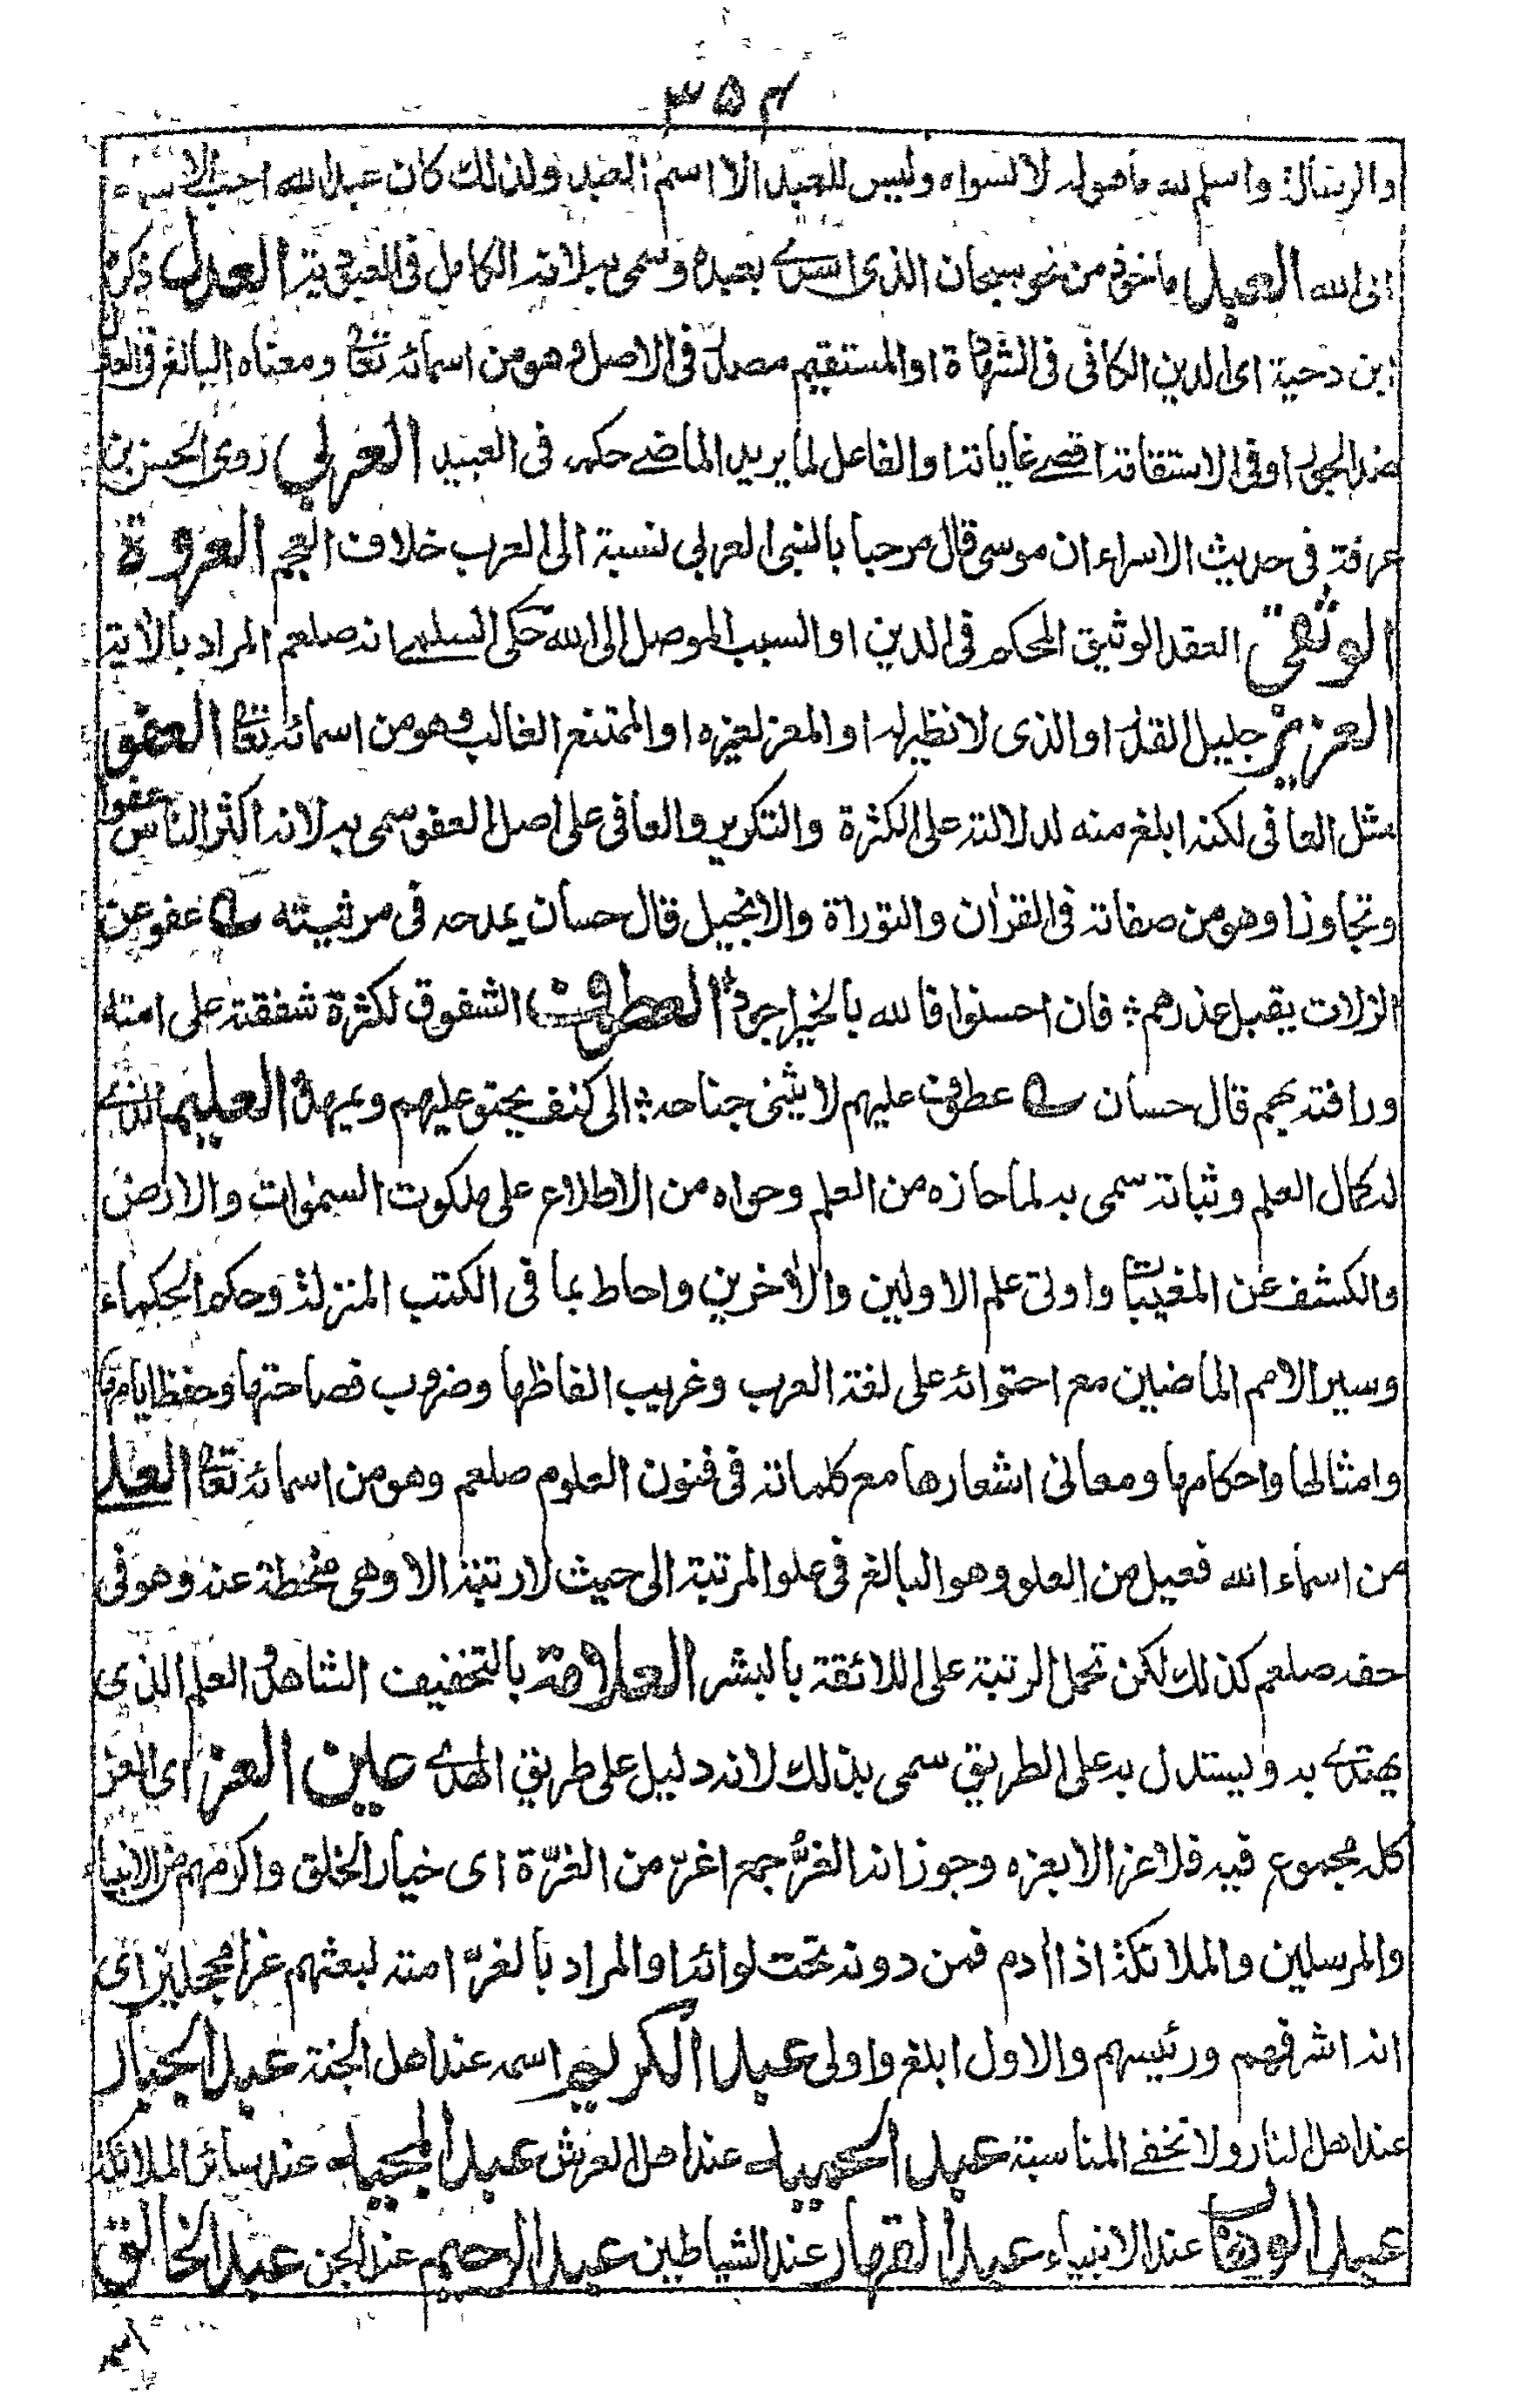 ٣٥٤
والرسالة واسلم لله ما هو له لا لسواه وليس للعبد الا اسم العبد ولذلك كان عبد الله احب الاسماء
الى الله العبد ماخوذ من نحو سبحان الذى اسرى بعبده وسمى به لانه الكامل فى العبودية العدل ذكره
ابن دحية اى الدين الكافى فى الشهادة او المستقيم مصدر فى الاصل وهو من اسمائه تعالى ومعناه البالغ فى العدل
ضد الجور او فى الاستقامة اقصى غاياتها والفاعل لما يريد الماضى حكمه فى العبيد العربى روى الحسن بن
عرفة فى حديث الاسراء ان موسى قال مرحبا بالنبى العربى نسبة الى العرب خلاف العجم العروة
الوثقى العقد الوثيق المحكم فى الدين او السبب الموصل الى الله حكى السلمى انه صلعم المراد بالآية
العزيز جليل القدر او الذى لا نظير له او المعز لغيره او الممتنع الغالب وهو من اسمائه تعالى العفو
مثل العافى لكنه ابلغ منه لدلالته على الكثرة والتكرير والعافى على اصل العفو سمى به لانه اكثر الناس عفوا
وتجاوزا وهو من صفاته فى القران والتوراة والانجيل قال حسان يمدحه فى مرثيته عفو عن
الزلات يقبل عذرهم : فان احسنوا فالله بالخير اجود العطوف الشفوق لكثرة شفقته على امته
ورافته بهم قال حسان عطوف عليهم لا يثنى جناحه : الى كنف يحنو عليهم ويمهد العليم الذى
له كمال العلم وثباته سمى به لما حازه من العلم وحواه من الاطلاع على ملكوت السموات والارض
والكشف عن المغيبات واوتى علم الاولين والآخرين واحاط بما فى الكتب المنزلة وحكم الحكماء
وسير الامم الماضين مع احتوائه على لغة العرب وغريب الفاظها وضروب فصاحتها وحفظ ايامها
وامثالها واحكامها ومعانى اشعارها مع كلماته فى فنون العلوم صلعم وهو من اسمائه تعالى العلى
من اسماء الله فعيل من العلو وهو البالغ فى علو المرتبة الى حيث لا رتبة الا وهى منحطة عنه وهو فى
حقه صلعم كذلك لكن تحمل الرتبة على اللائقة بالبشر العلامة بالتخفيف الشاهد والعلم الذى
يهتدى به ويستدل به على الطريق سمى بذلك لانه دليل على طريق الهدى عين العز اى العز
كله مجموع فيه فلا عز الا بعزه وجوز انه الغرّ جمع اغرّ من الغرّة اى خيار الخلق واكرمهم من الانبياء
والمرسلين والملائكة اذ اادم فمن دونه تحت لوائه او المراد بالغرّ امته لبعثهم غرا محجلين اى
انه اشرفهم ورئيسهم والاول ابلغ واولى عبد الكريم اسمه عند اهل الجنة عبد الجبار
عند اهل النار ولا تخفى المناسبة عبد الحميد عند اهل العرش عبد المجيد عند سائر الملائكة
عبد الوهاب عند الانبياء عبد القهار عند الشياطين عبد الرحيم عند الجن عبد الخالق